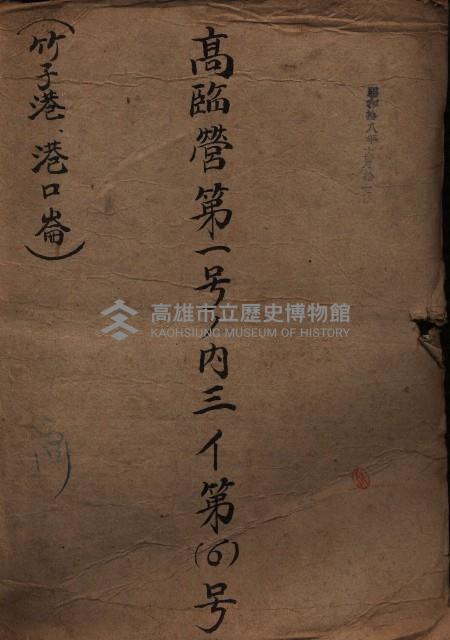 高臨營第一号ノ內三イ第(6)号
(竹子港、港口崙)
高雄市立歷史博物館
KAOHSIUNG MUSEUM OF HISTORY